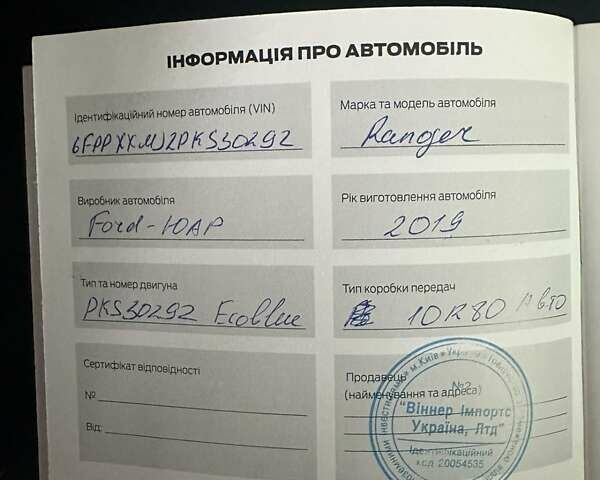 ІНФОРМАЦІЯ ПРО АВТОМОБІЛЬ
Ідентифікаційний номер автомобіля (VIN)
6FPPXXMJ2PKS30292
Марка та модель автомобіля
Ranger
Виробник автомобіля
Ford-ЮАР
Рік виготовлення автомобіля
2019
Тип та номер двигуна
PKS30292 Ecoblue
Тип коробки передач
10R80 Авто
Сертифікат відповідності
№
Від:
Продавець
(найменування та адреса)
м.Київ
№2
"Віннер Імпортс
Україна, Лтд"
Ідентифікаційний
код 20054535